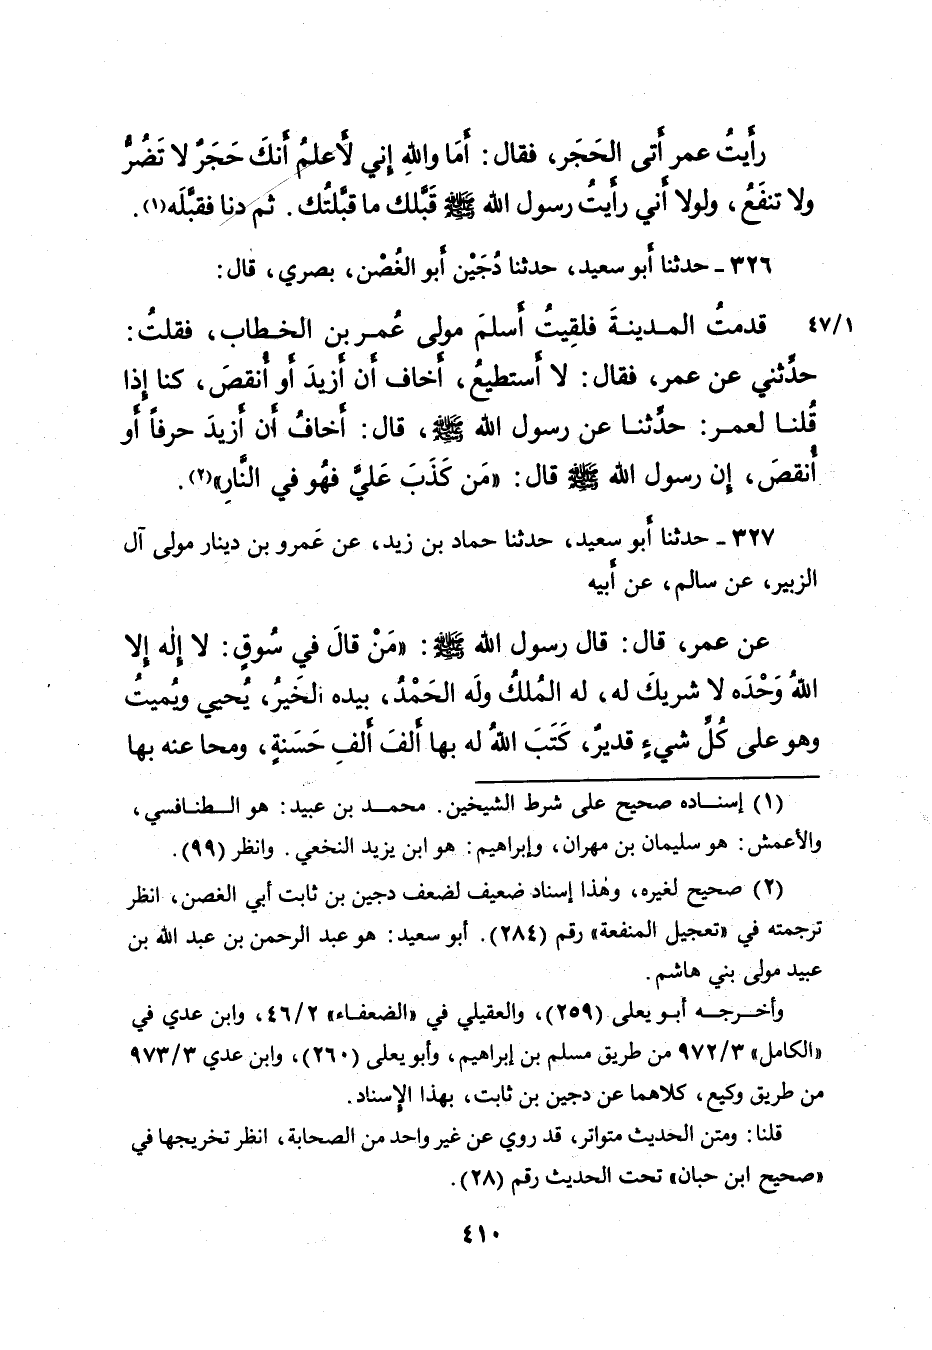 رأَيتُ عمر أَتى الحَجَر، فقال: أَمَا واللهِ إِني لَأَعلمُ أَنكَ حَجَرٌ لا تَضُرُّ
ولا تنفَعُ، ولولا أَني رأَيتُ رسول الله ﷺ قَبَّلك ما قبَّلتُك. ثم دنا فقبَّلَه(١).
٣٢٦ ـ حدثنا أَبو سعيد، حدثنا دُجَيْن أَبو الغُصْن، بصري، قال:
٤٧/١ قدمتُ المدينةَ فلقِيتُ أَسلمَ مولى عُمر بن الخطاب، فقلتُ:
حدِّثني عن عمر، فقال: لا أَستطيعُ، أَخاف أَن أَزيدَ أَو أَنقصَ، كنا إِذا
قُلنا لعمر: حدِّثنا عن رسول الله ﷺ، قال: أَخافُ أَن أَزيدَ حرفاً أَو
أَنقصَ، إِن رسول الله ﷺ قال: «مَن كَذَبَ عَليَّ فهُو في النَّارِ»(٢).
٣٢٧ ـ حدثنا أَبو سعيد، حدثنا حماد بن زيد، عن عَمرو بن دينار مولى آل
الزبير، عن سالم، عن أَبيه
عن عمر، قال: قال رسول الله ﷺ: «مَنْ قالَ في سُوقٍ: لا إِلٰه إِلا
اللهُ وَحْدَه لا شريكَ له، له المُلكُ ولَه الحَمْدُ، بيده الخَيرُ، يُحيي ويُميتُ
وهو على كُلِّ شيءٍ قديرٌ، كَتَبَ اللهُ له بها أَلفَ أَلفِ حَسَنةٍ، ومحا عنه بها
(١) إسناده صحيح على شرط الشيخين. محمد بن عبيد: هو الطنافسي،
والأعمش: هو سليمان بن مهران، وإبراهيم: هو ابن يزيد النخعي. وانظر (٩٩).
(٢) صحيح لغيره، وهٰذا إسناد ضعيف لضعف دجين بن ثابت أبي الغصن، انظر
ترجمته في «تعجيل المنفعة» رقم (٢٨٤). أبو سعيد: هو عبد الرحمن بن عبد الله بن
عبيد مولى بني هاشم.
وأخرجه أبو يعلى (٢٥٩)، والعقيلي في «الضعفاء» ٤٦/٢، وابن عدي في
«الكامل» ٩٧٢/٣ من طريق مسلم بن إبراهيم، وأبو يعلى (٢٦٠)، وابن عدي ٩٧٣/٣
من طريق وكيع، كلاهما عن دجين بن ثابت، بهذا الإسناد.
قلنا: ومتن الحديث متواتر، قد روي عن غير واحد من الصحابة، انظر تخريجها في
«صحيح ابن حبان» تحت الحديث رقم (٢٨).
٤١٠